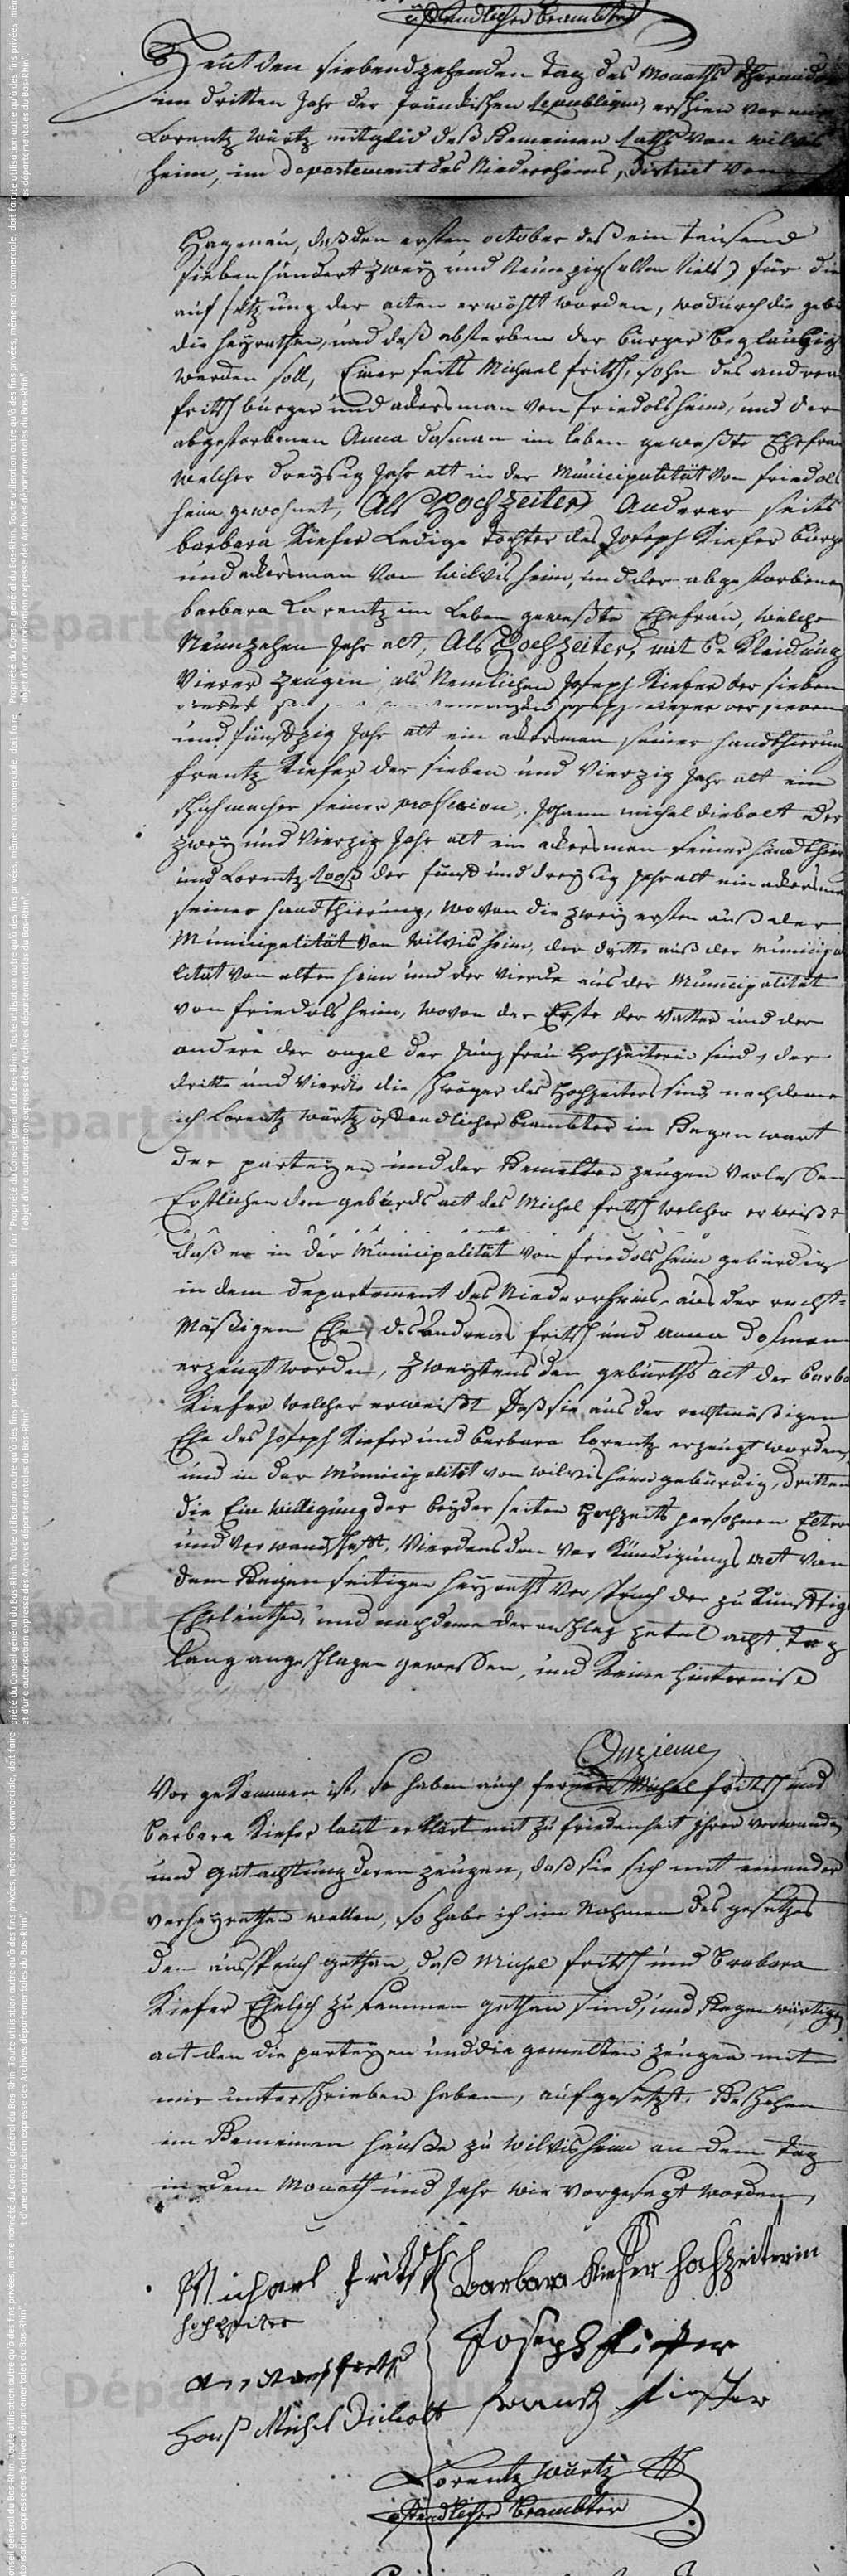 öffendlicher beambter
Heut den siebendzehenden Tag des Monaths thermidor
im dritten Jahr der fränckischen republique, erschien vor mir
Lorentz Würtz mitglid deß Gemeinen Raths von wilvis
heim, im departement des Niederrheins, district von
Hagenau, deß den ersten october deß ein tausend
siebenhundert zwey und Neunzig (alten stiels) für die
auf setzung der acten erwöhlt worden, wodurch die geb
die heyrathen, und daß absterben der bürger beglaubigt
werden soll, Einer seits Michael fritsch, sohn des andreas
fritsch bürger und ackersman von friedolsheim, und der
abgestorbenen Anna dosman im leben geweßte Ehefrau
welcher dreysig Jahr alt in der Municipalität von friedols
heim gewohnet, Als Hochzeiter, Anderer seits
barbara Kiefer Ledige tochter des Joseph Kiefer bürger
und ackersman von wilvisheim, und der abgestorbenen
barbara Lorentz im Leben geweßte Ehefrau, welche
Neunzehen Jahr alt, Als Hochzeiter, mit be Kleidung
Vierer zeugen als Nemlichen Joseph Kiefer der sieben
und fünffzig Jahr alt ein ackersman seiner handthierung
frantz Kiefer der sieben und Vierzig Jahr alt ein
schuhmacher seiner profession, Johann michel diebolt der
zwey und Vierzig Jahr alt ein ackersman seiner handthier
und Lorentz Looß der fünff und dreysig Jahr alt ein ackersman
seiner handthierung, wovon die zwey ersten auß der
Municipalität von wilvisheim, der dritte auß der municipa
litat von altenheim und der vierde aus der Municipalität
von friedolsheim, wovon der Erste der Vatter und der
andere der ongel der Jungfrau Hochzeiterin sind, der
dritte und Vierdte die schwäger des Hochzeiters sind, nachdeme
ich Lorentz würtz öffendlicher beambter in Gegenwart
der parteyen und der Gemelten zeugen verlessen
Erstlichen den geburdsact des Michel fritsch welcher erweißt
daß er in der Municipalität von friedolsheim gebürdig
in dem departement des Niederrheins, aus der recht-
Mäßigen Ehe, des andreas fritsch und anna dosman
erzeugt worden, zweytens den geburths act der barba
Kiefer welcher erweißt daß sie aus der rechtmäßigen
Ehe des Joseph Kiefer und barbara Lorentz erzeugt worden,
und in der Municipalität von wilvisheim gebürdig, dritten
die Ein willigung der beyder seiten Hochzeits persohnen Elter
und verwandschafft, Vierdens den ver Kündigungs act von
dem Gegenseitigen heyraths verspruch der zu Künfftig
Eheleuthen, und nachdeme der anschlag zetel acht tag
lang angeschlagen gewessen, und Keine hinterniße
Onzieme
vor gekommen ist, so haben auch ferner Michel fritsch und
barbara Kiefer laut erklärt mit zufriedenheit ihrer verwanden
und gutachtung deren zeugen, daß sie sich mit einander
verheyrathen wollen, so habe ich im Nahmen des gesetzes
den ausspruch gethan, daß Michel fritsch und barbara
Kiefer Ehelich zusammen gethan sind, und Gegenwärtigen
act den die parteyen und die gemelten zeugen mit
mir unterschrieben haben, aufgesetzt. Geschehen
im Gemeinen hauße zu wilvisheim an dem Tag
in dem Monath und Jahr wie vorgesagt worden,
Michael fritsch barbara Kiefer hochzeiterin
hochzeiter
Joseph Kiefer
andreas fritsch
frantz Kieffer
Hanß Michel Diebolt
Lorentz würtz
öffendlicher beambter